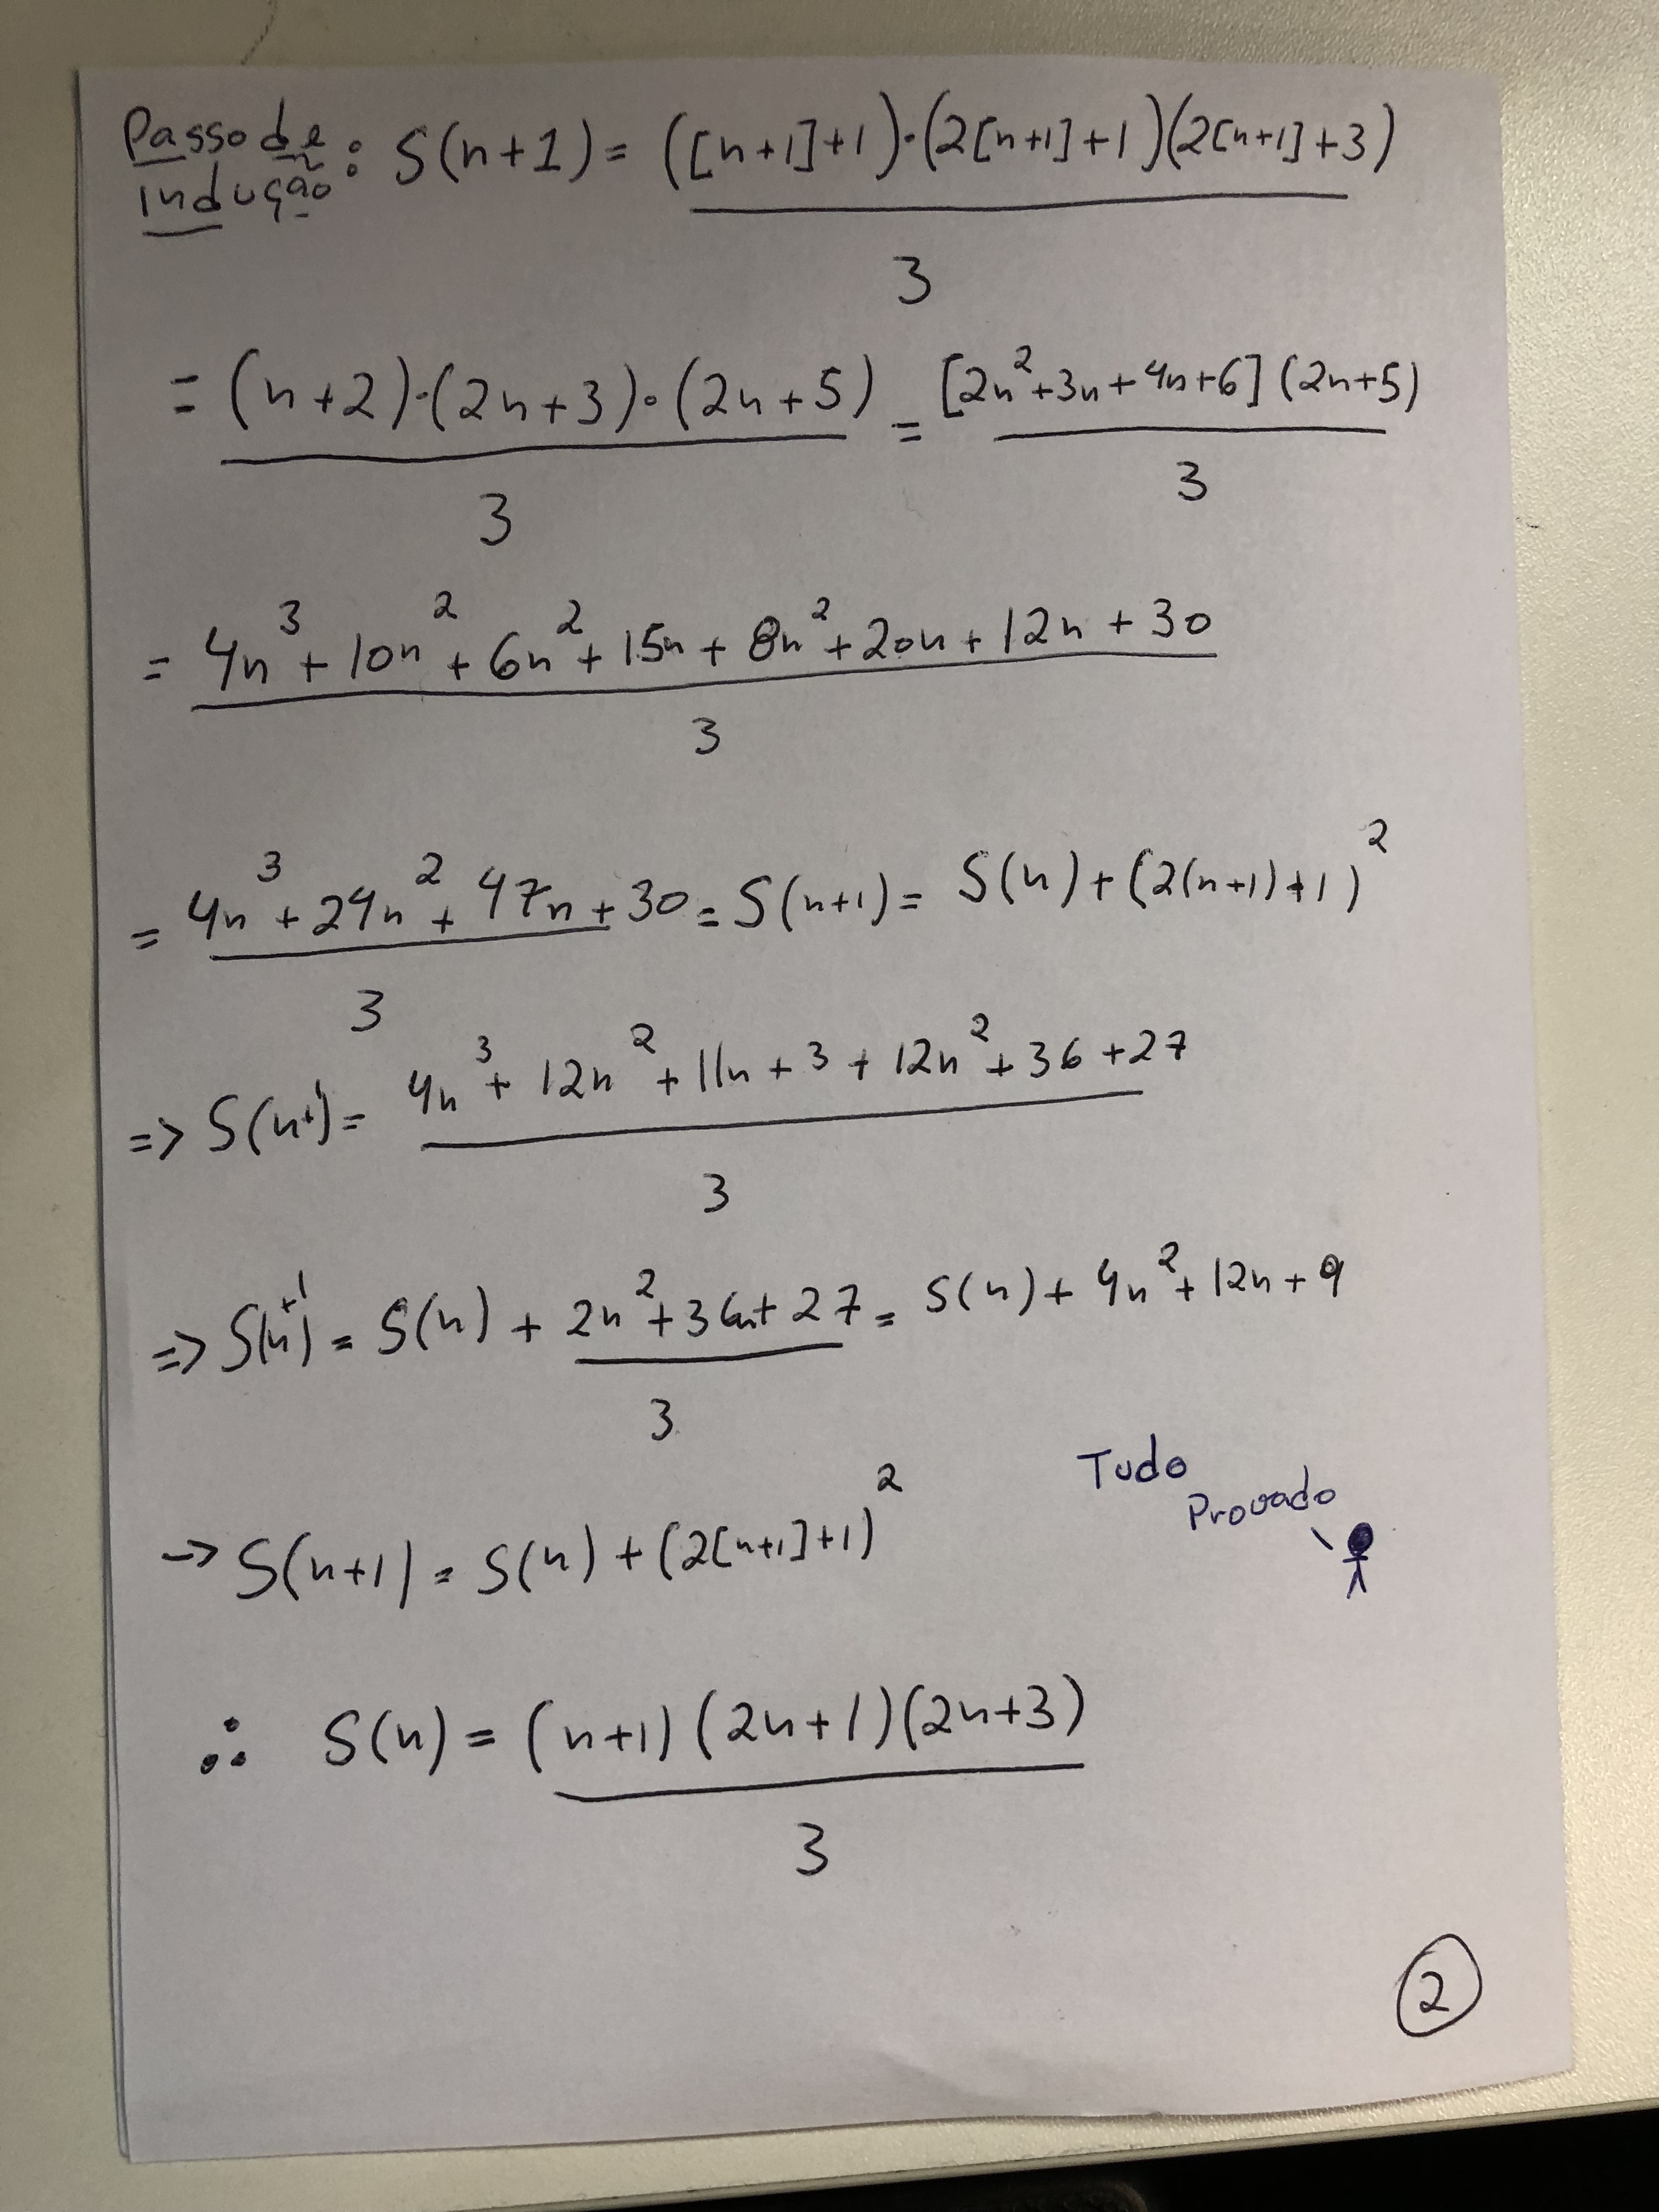 Passo de indução: S(n+1) = ([n+1]+1)·(2[n+1]+1)(2[n+1]+3)
3
= (n+2)·(2n+3)·(2n+5) = [2n²+3n+4n+6](2n+5)
3 3
= 4n³+10n²+6n²+15n+8n²+20n+12n+30
3
= 4n³+24n²+47n+30 = S(n+1) = S(n)+(2(n+1)+1)²
3
=> S(n+1) = 4n³+12n²+11n+3+12n²+36+27
3
=> S(n+1) = S(n) + 2n²+36n+27 = S(n)+4n²+12n+9
3
Tudo
Provado
-> S(n+1) = S(n)+(2[n+1]+1)²
∴ S(n) = (n+1)(2n+1)(2n+3)
3
2